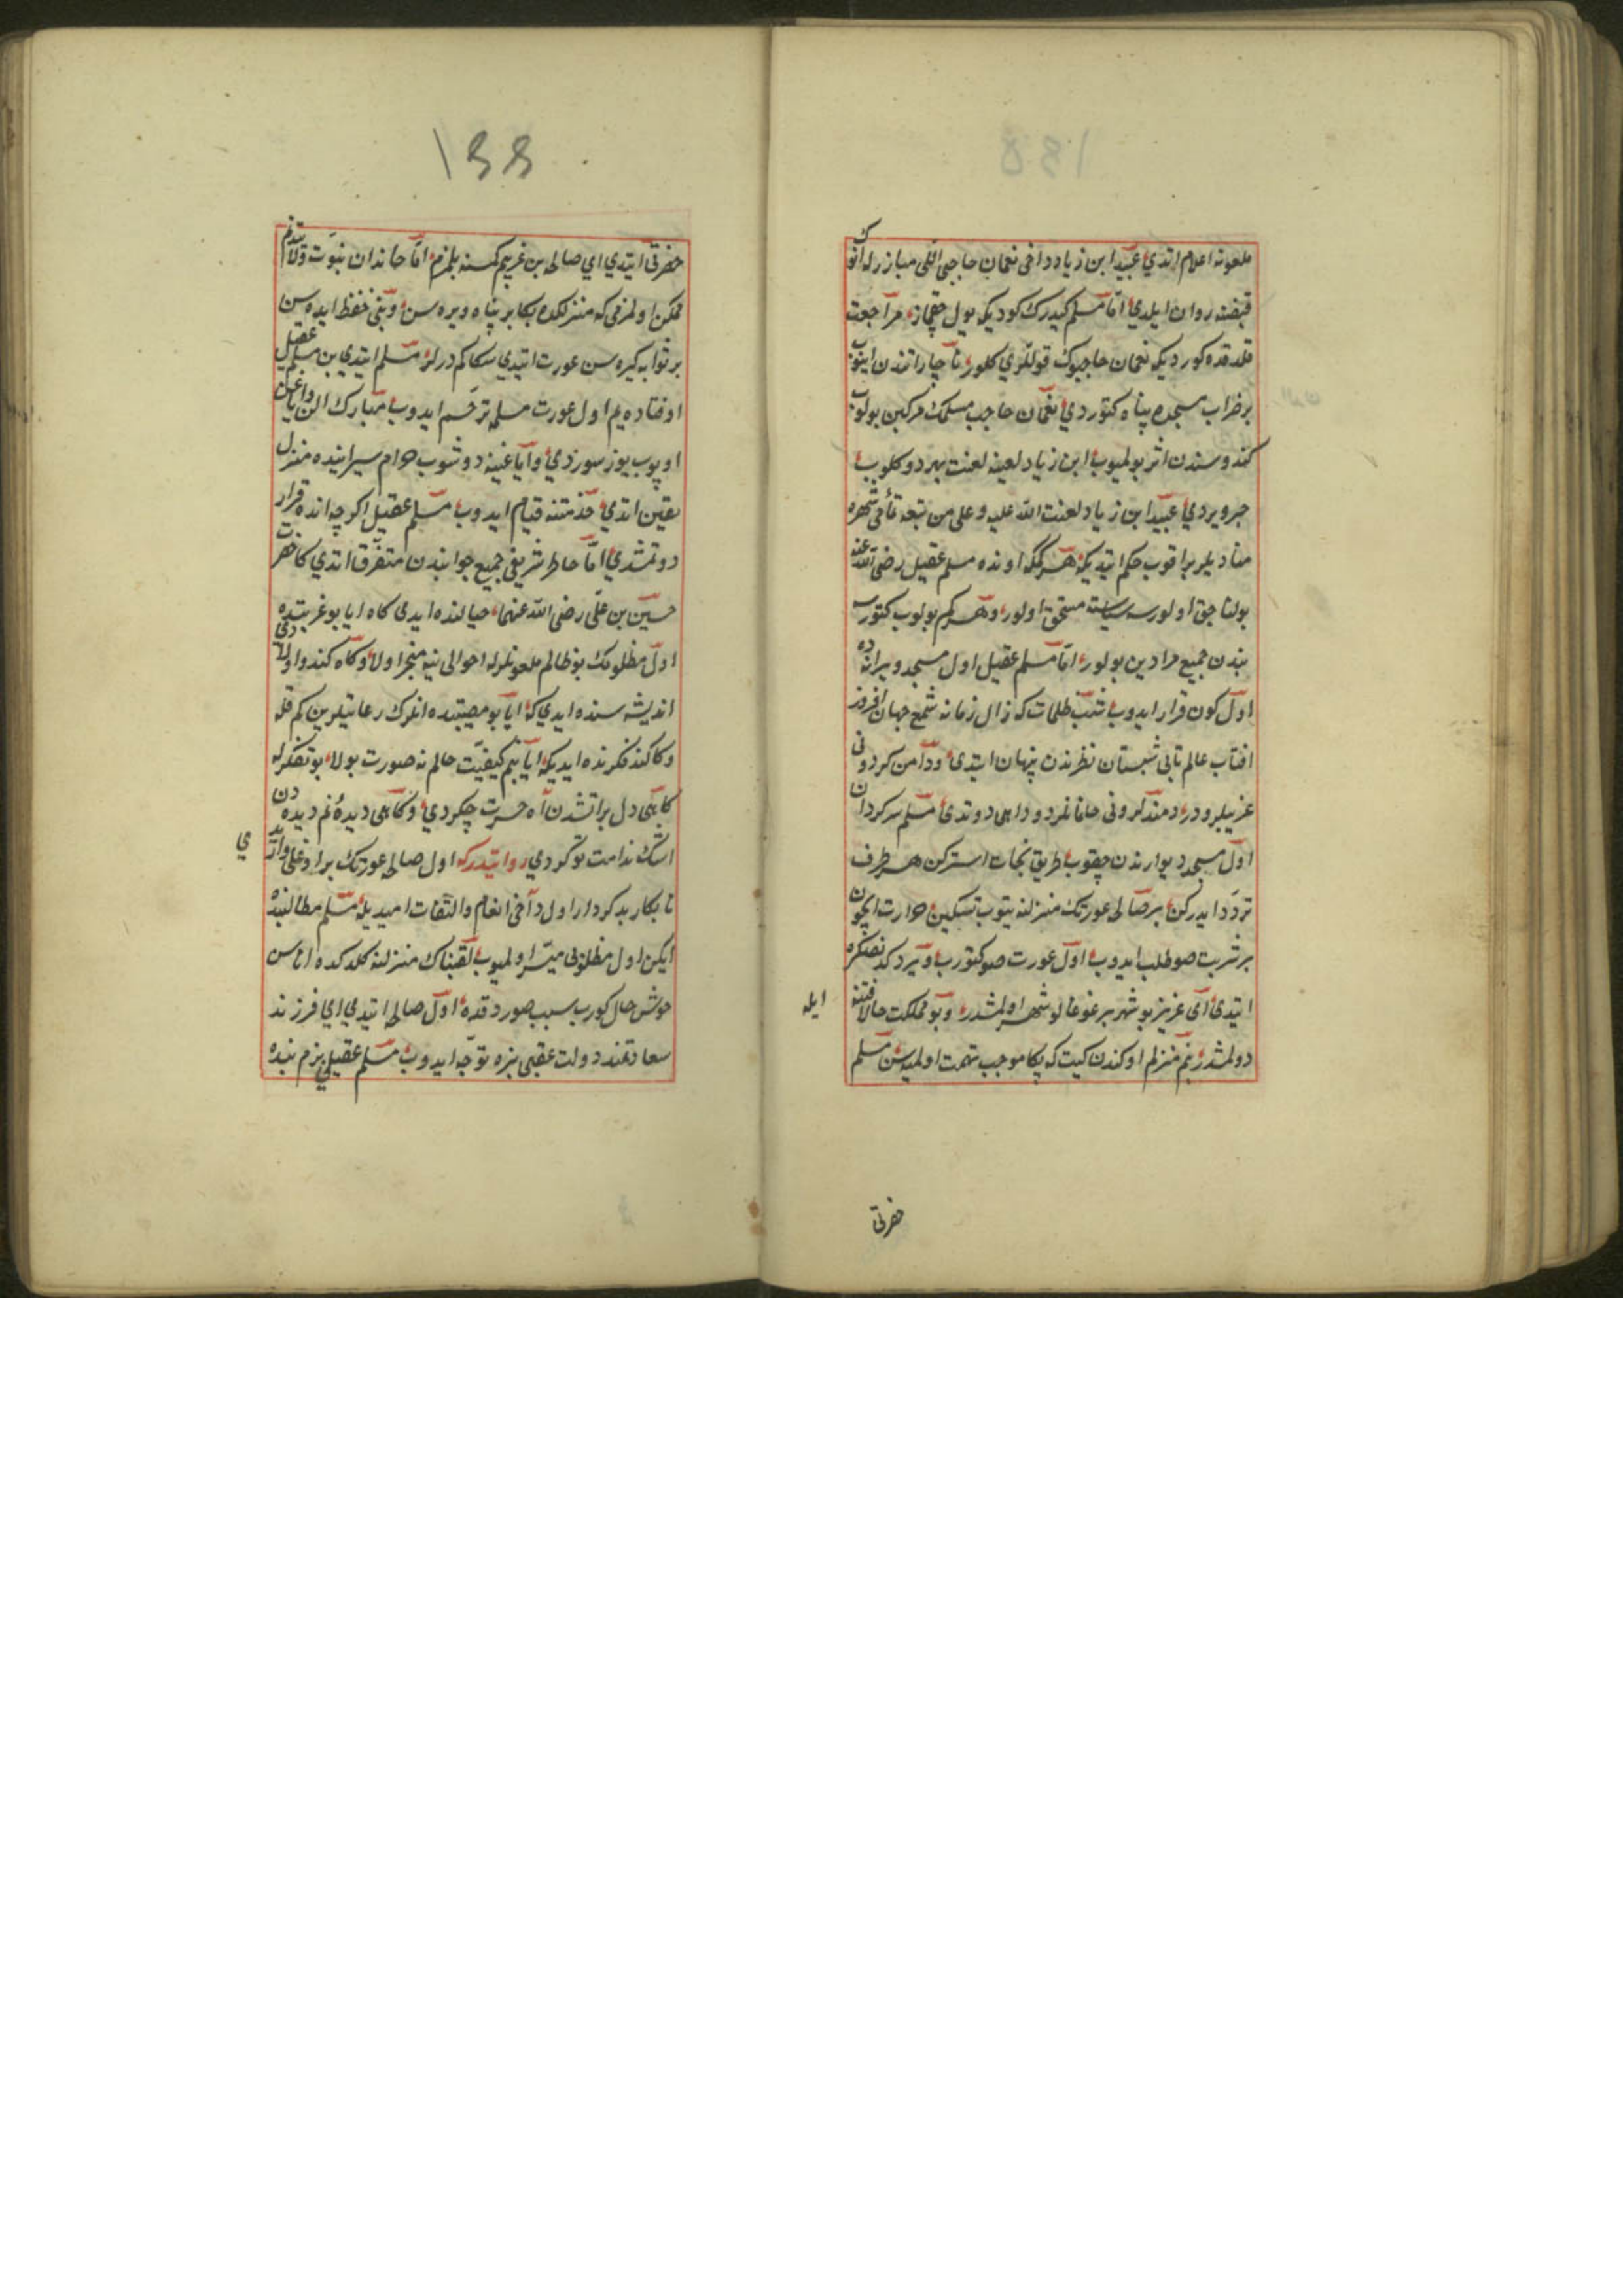 ملعونه اعلام اتدي عبيد ابن زياد داخى نعمان حاجبى اللى مبارزله انوك
قبضنه روان ايلدي امّا مسلم كيدرك كورديكه يول چقماز مراجعت
قلدقده كورديكه نعمان حاجبوك قوللري كلور ناچار اتندن اينوب
بر خراب مسجده پناه كتوردي نعمان حاجب مسلمك مركبن بولوب
كندوسندن اثر بولميوب ابن زياد لعينه لعنت بهر دو كلوب
خبر ويردي عبيد ابن زياد لعنت الله عليه وعلى من تبعه تأ شهره
مناديلر براقوب حكم اتديكه هر كمك اونده مسلم عقيل رضى الله عنه
بولنا جق اولورسه سياسته مستحق اولور وهر كم بولوب كتورسه
بندن جميع مرادين بولور امّا مسلم عقيل اول مسجد ويرانه ده
اول كون قرار ايدوب شب ظلمات كه زال زمانه شمع جهان افروز
افتاب عالم تابى شبستان نظرندن پنهان ايتدى ودامن كردونى
عزيزلر دود دمندلر ونى خانمانلر دود اهى دوتدى مسلم سركردان
اول مسجد ديوارندن چقوب طريق نجات استركن هر طرف
تردّد ايدركن بر صالحه عورتك منزلنه يتوب تسكين حرارت ايچون
بر شربت صو طلب ايدوب اول عورت صو كتورب ويردكدنصكره
ايتدى اى عزيز بو شهر بر غوغالو شهر اولمشدر وبو مملكت حالا فتنه
ايله
دولمشدر بنم منزلم اوكندن كيت كه بكا موجب تهمت اولميه سن مسلم
حضرتى
١٤٤
حضرتى ايتدي اي صالحه بن غريبم كمسنه بلمزم امّا خاندان نبوّت وولايتدنم
ممكن اولمزمى كه منزلكده بكا بر پناه ويره سن وبنى حفظ ايده سن
بر ثوابه كيره سن عورت ايتدي سكا كم درلر مسلم ايتدي بن مسلم عقيل
اوفتاده يم اول عورت مسلمه ترحّم ايدوب مبارك الن واياغين
اوپوب يوز سوردي واياغينه دوشوب حرم سراينده منزل
تعيين اتدي خدمتنه قيام ايدوب مسلم عقيل اكرچه انده قرار
دوتمشدي امّا خاطر شريفى جميع جوانبدن متفرّق اتدي كاه حضرت
حسين بن على رضى الله عنهما خيالنده ايدى كاه ايا بو غربتده
اول مظلومك بو ظالم ملعونلرله احوالى نيه منجر اولا وكاه كندو اولادى
انديشه سنده ايدي كه ايا بو مصيبتده انلرك رعايتلرين كم قله
وكاه كند فكرنده ايديكه ايا بنم كيفيّت حالم نه صورت بولا بو تفكرله
كاهى دل پراتشدن اه حسرت چكردي وكاهى ديدهٔ نم ديده دن
اشك ندامت توكردي روايتدركه اول صالحه عورتك بر اوغلى واردي
نابكار بدكردار اول داخى انعام والتفات اميديله مسلم مطالبنده
ايكن اول مظلوبى ميسّر اولميوب لقبناك منزلنه كلدكده اناسن
خوش حال كورب سبب صوردقده اول صالحه ايتدي اي فرزند
سعادتمند دولت عقبى بزه توجّه ايدوب مسلم عقيلي بزم بنده